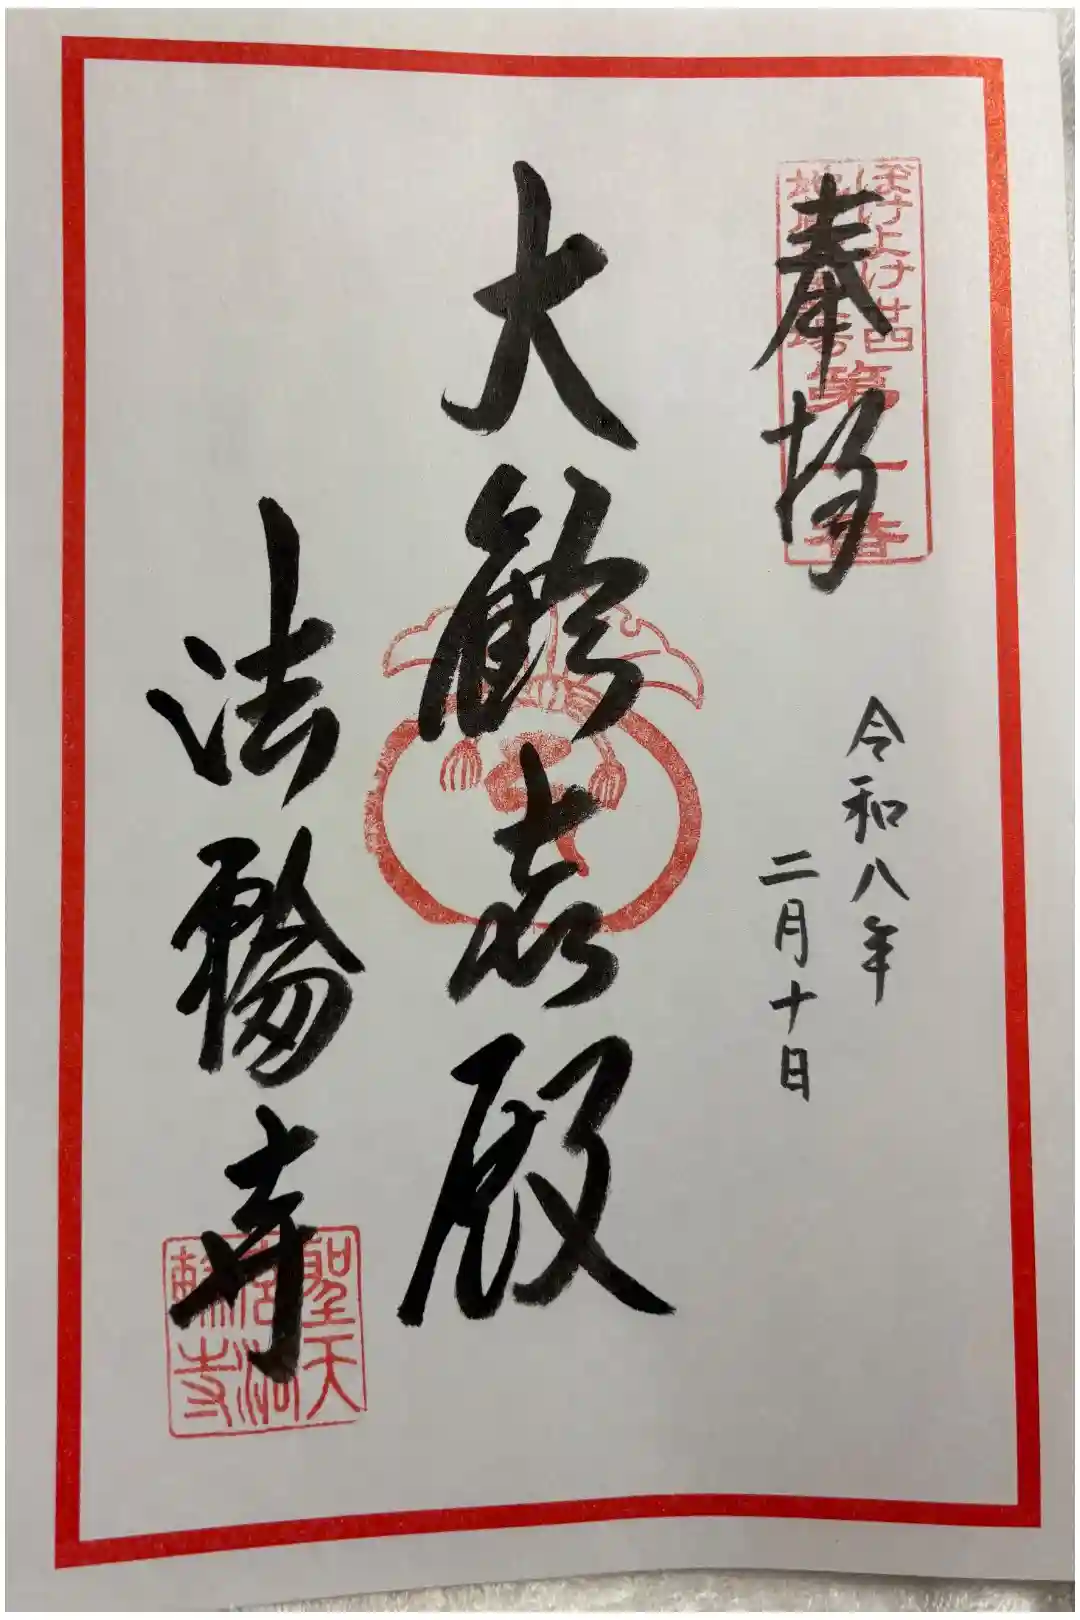 ぼけよけ廿四
地蔵霊場
第一番
奉拝
令和八年
二月十日
大歓喜殿
法輪寺
聖天
宮法
輪寺